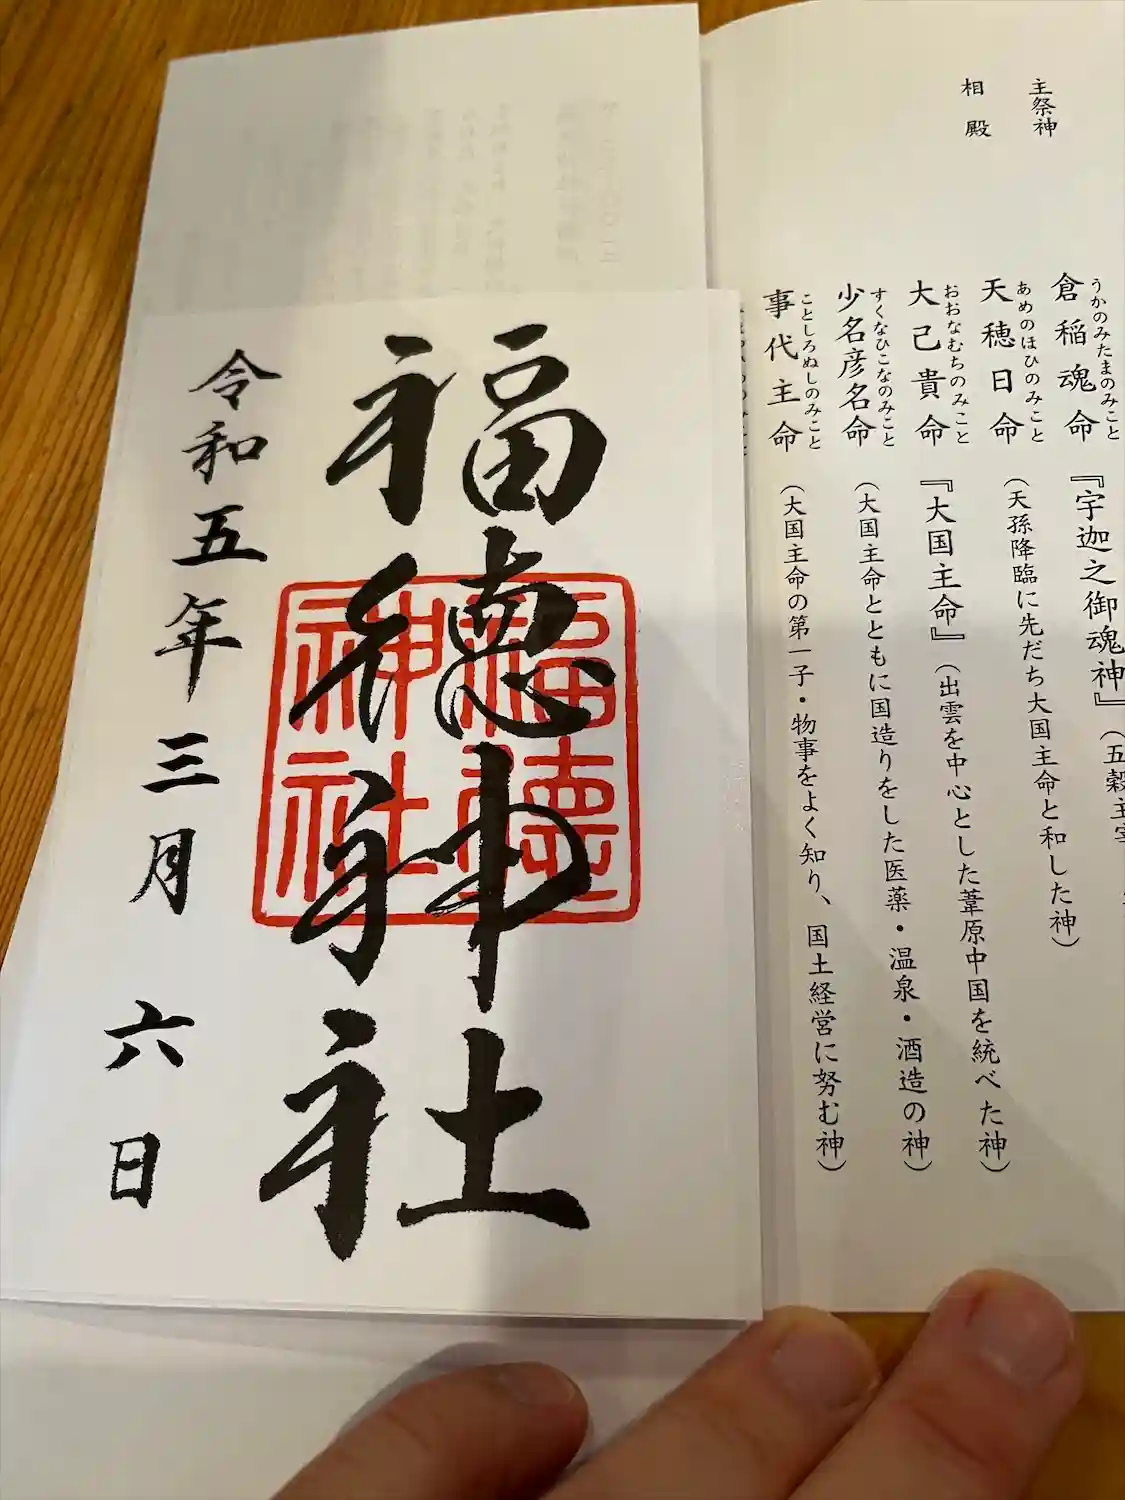 主祭神
相殿
倉稲魂命
うかのみたまのみこと
『宇迦之御魂神』(五穀主宰
天穂日命
あめのほひのみこと
(天孫降臨に先だち大国主命と和した神)
大己貴命
おおなむちのみこと
『大国主命』(出雲を中心とした葦原中国を統べた神)
少名彦名命
すくなひこなのみこと
(大国主命とともに国造りをした医薬・温泉・酒造の神)
事代主命
ことしろぬしのみこと
(大国主命の第一子・物事をよく知り、国土経営に努む神)
福徳神社
福徳神社
令和五年三月六日